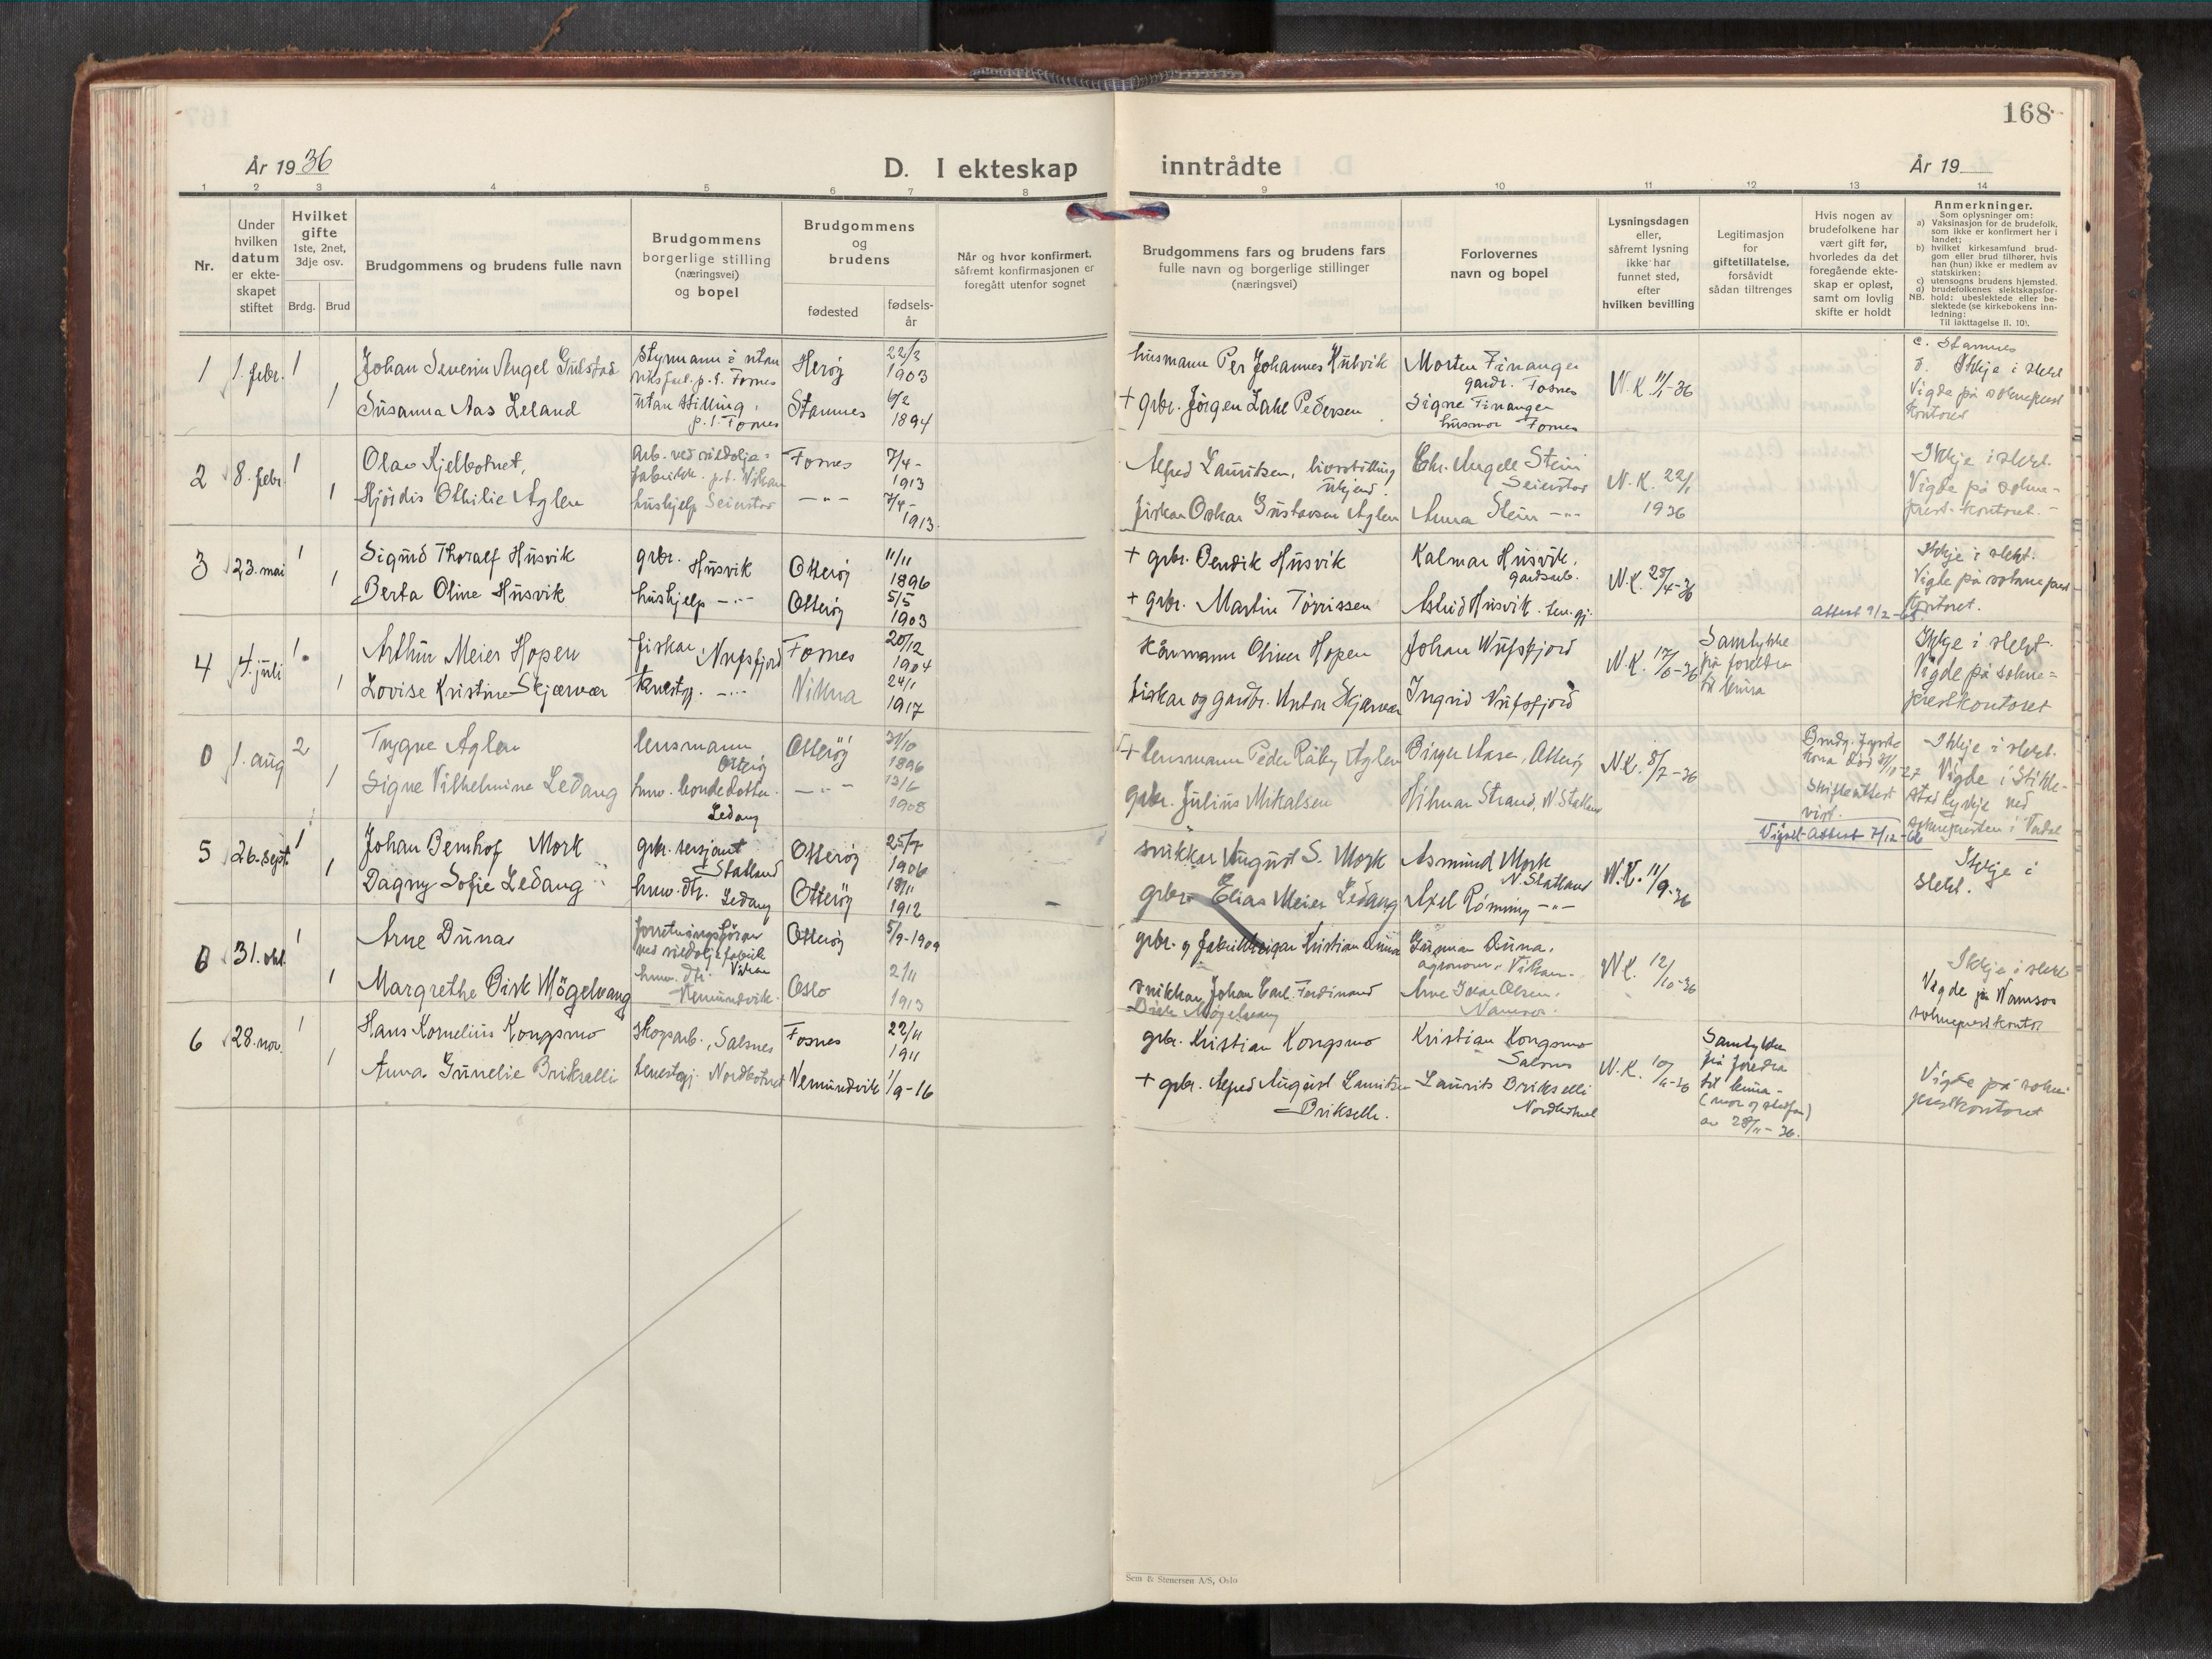 168
År 1936
D. I ekteskap inntrådte
År 19
1 2 3 4 5 6 7 8 9 10 11 12 13 14
Nr.
Under
hvilken
datum
er ekte-
skapet
stiftet
Hvilket
gifte
1ste, 2net,
3dje osv.
Brdg. Brud
Brudgommens og brudens fulle navn
Brudgommens
borgerlige stilling
(næringsvei)
og bopel
Brudgommens
og
brudens
fødested
fødsels-
år
Når og hvor konfirmert,
såfremt konfirmasjonen er
foregått utenfor sognet
Brudgommens fars og brudens fars
fulle navn og borgerlige stillinger
(næringsvei)
Forlovernes
navn og bopel
Lysningsdagen
eller,
såfremt lysning
ikke har
funnet sted,
efter
hvilken bevilling
Legitimasjon
for
giftetillatelse,
forsåvidt
sådan tiltrenges
Hvis nogen av
brudefolkene har
vært gift før,
hvorledes da det
foregående ekte-
skap er opløst,
samt om lovlig
skifte er holdt
Anmerkninger.
Som oplysninger om:
a) Vaksinasjon for de brudefolk,
som ikke er konfirmert her i
landet;
b) hvilket kirkesamfund brud-
gom eller brud tilhører, hvis
han (hun) ikke er medlem av
statskirken;
c) utensogns brudens hjemsted.
d) brudefolkenes slektskapsfor-
NB. hold: ubeslektede eller be-
slektede (se kirkebokens inn-
ledning:
Til iakttagelse II. 10).
1 1. febr. 1 Johan Severin Angel Gulstad
styrmann i utan
riksfart p.t. Fosnes
Herøy 22/3 1903
husmann Per Johannes Hulvik
Morten Finanger
gardr. Fosnes
N.K. 11/1-36
c. Stamnes
d. Ikkje i slekt
Vigde på sokneprest
kontoret
1 Susanna Aas Leland
utan stilling,
p.t. Fosnes
Stamnes 6/2 1894
+ grbr. Jörgen Lahl Pedersen
Signe Finanger
husmor Fosnes
2 8. febr. 1 Olav Kjelbotnet,
Arb. ved sildolje-
fabrikk p.t. Vikan
Fosnes 7/4- 1913
Alfred Lauritsen, livsstilling
ukjend.
Chr. Angell Stein
Seierstad
N.K. 22/1
1936
Ikkje i slekt.
Vigde på sokne-
prest-kontoret.-
1 Hjördis Othilie Aglen
hushjelp Seierstad
-"- 7/4- 1913.
fiskar Oskar Gustavsen Aglen
Anna Stein -"-
3 23. mai 1 Sigurd Thoralf Husvik
grbr. Husvik
Otteröy 11/11 1896
+ grbr. Bendik Husvik
Kalmar Husvik,
gardsarb.
N.K. 28/4-36
Ikkje i slekt.
Vigde på sokneprest
kontoret.
1 Berta Oline Husvik
hushjelp -"-
Otteröy 5/5 1903
+ grbr. Martin Tørrissen
Astrid Husvik. ten.gj.
Attest 9/2-65.
4 4. juli 1 Arthur Meier Hopen
fiskar, Nufsfjord
Fosnes 20/12 1904
kårmann Oliver Hopen
Johan Nufsfjord
N.K. 17/6-36
Samtykke
frå foreldra
til brura
Ikkje i slekt.
Vigde på sokne=
prestkontoret
1 Lovise Kristine Skjærvær
tenestgj. -"-
Vikna 24/1 1917
fiskar og gardbr. Anton Skjærvær
Ingrid Nufsfjord
0 1. aug 2 Trygve Aglen
lensmann
Otteröy
Otteröy 31/10 1896
+ lensmann Peder Råby Aglen
Birger Aasen, Otteröy
N.K. 8/7-36
Brudg. fyrste
kona død 8/11-27
Skifteattest
vist.
Ikkje i slekt.
Vigde i Stikle-
stad kyrkje ved
soknepresten i Verdal
1 Signe Vilhelmine Ledang
huv. bondedotter
Ledang
-"- 13/6 1908
grbr. Julius Mikalsen
Hilmar Strand, N. Statland
Vigsel-Attest 7/12-66
5 26. sept. 1 Johan Bernhof Mork
grbr. sersjant
Statland
Otteröy 25/7 1906
snikkar August S. Mork
Asmund Mork
N. Statland
N.K. 11/9-36
Ikkje i
slekt.
1 Dagny Sofie Ledang
huv. dtr. Ledang
Otteröy 18/11 1912
grbr. Elias Meier Ledang
Axel Rømning -"-
6 31. okt. 1 Arne Duna
forretningsförar
ved sildoljefabrik
Vikan
Otteröy 5/9-1909
grbr. og fabrikkeigar Kristian Duna
Gunnar Duna,
agronom, Vikan.
N.K. 12/10-36
Ikkje i slekt
Vigde på Namsos
sokneprestkontor
1 Margrethe Birk Mögelvang
huv. dtr.
Vemundvik.
Oslo 2/11 1913
snikkar Johan Carl Ferdinand
Birk Mögelvang
Arne Ivar Olsen,
Namsos.
6 28. nov. 1 Hans Kornelius Kongsmo
skogsarb., Salsnes
Fosnes 22/11 1911
grbr. Kristian Kongsmo
Kristian Kongsmo
Salsnes
N.K. 10/11-36
Samtykke
frå foreldra
til brura-
(mor og stedfar)
av 28/11-36.
Vigde på sokne-
prestkontoret
1 Anna Gunelie Brikselli
tenestgj. Nordbotnet
Vemundvik 1/9-16
+ grbr. Alfred August Lauritsen
Brikselli.
Laurits Brikselli
Nordbotnet
Sem & Stenersen A/S, Oslo